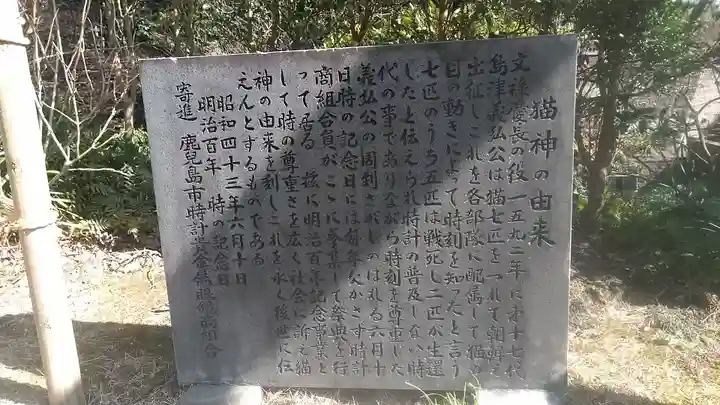 猫神の由来
文禄慶長の役(一五九二年)に第十七代
島津義弘公は猫七匹をつれて朝鮮に
出征しこれを各部隊に配属して猫の
目の動きによって時刻を知ったと言う
七匹のうち五匹は戦死し二匹が生還
したと伝えられ時計の普及しない時
代の事で当りながら時刻を尊重した
義弘公の周到さがしのばれる六月十
日時の記念日には毎年欠かさず時計
商組合員がこゝに参集して祭典を行
って居る 茲に明治百年記念事業と
して時の尊重さを広く社会に訴え猫
神の由来を刻しこれを永く後世に伝
えんとするものである
昭和四十三年六月十日
明治百年 時の記念日
寄進 鹿児島市時計貴金属眼鏡商組合